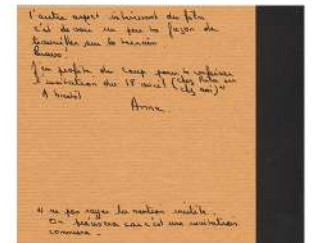 l'autre aspect intéressant du film
c'est de voir un peu ta façon de
travailler sur le terrain
Bravo.
J'en profite du coup pour te confirmer
l'invitation du 18 avril (chez
A bientôt
Anna
ne pas rayer la mention inutile
On précisera car c'est une invitation
commune.